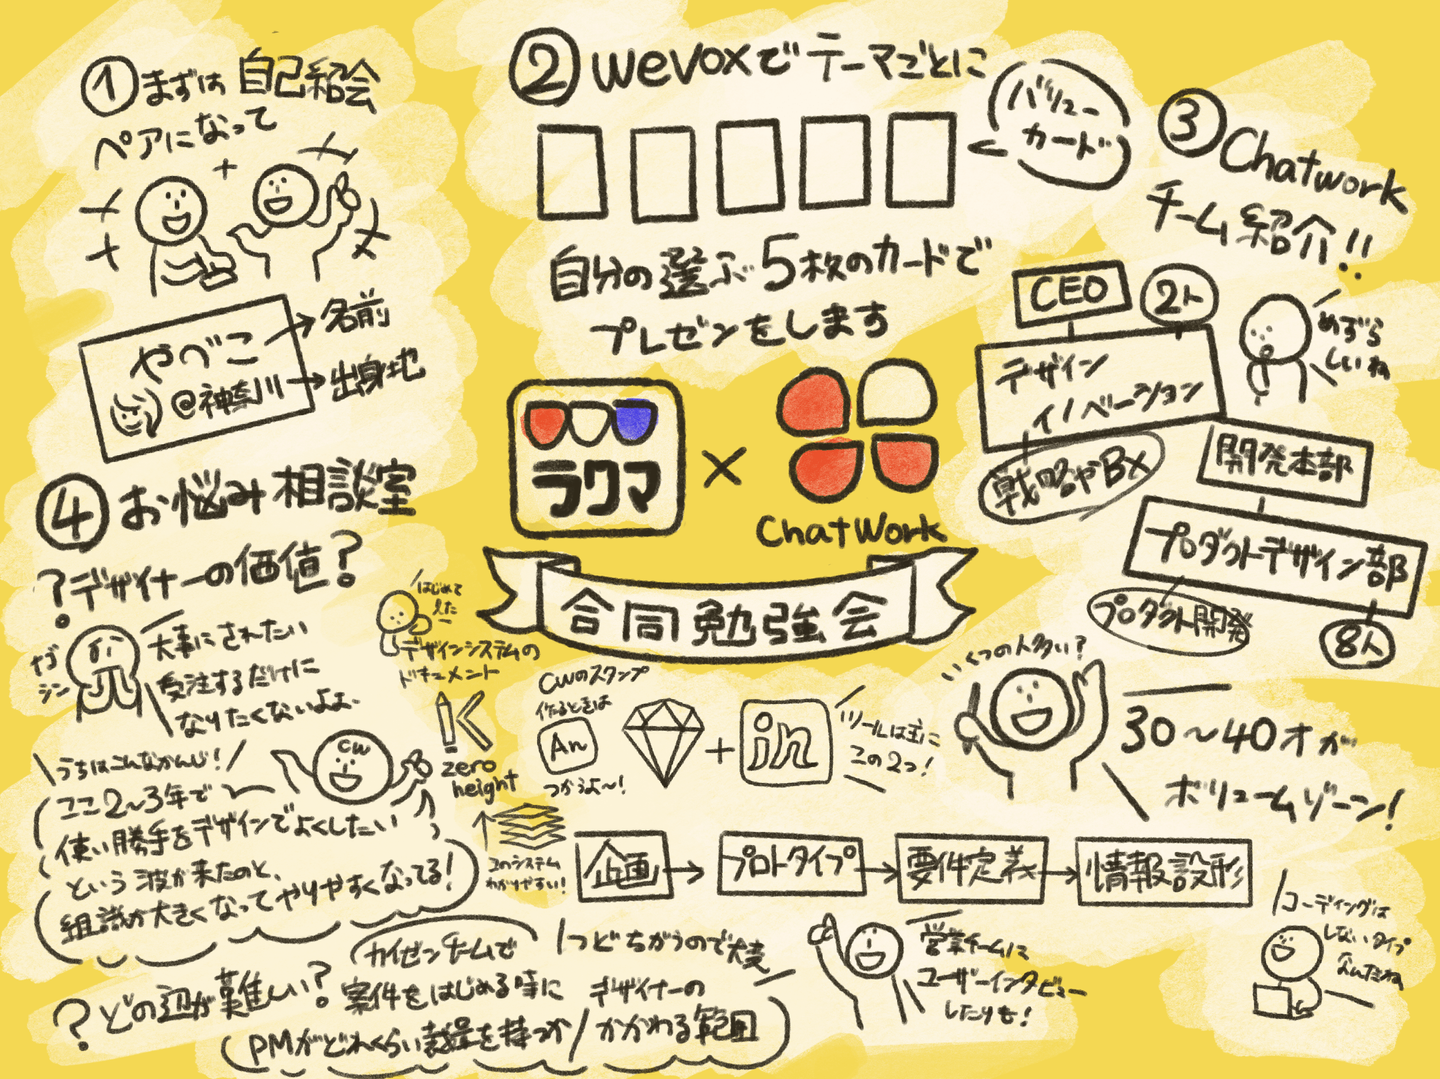 ① まずは 自己紹会
ペアになって
やべこ
@神奈川
名前
出身地
② wevoxで テーマごとに
バリュー
カード
自分の選ぶ5枚のカードで
プレゼンをします
③ Chatwork
チーム紹介!!
CEO
2人
デザイン
イノベーション
戦略やBx
めずら
しいね
開発本部
プロダクトデザイン部
プロダクト開発
8人
ラクマ
×
ChatWork
合同勉強会
④ お悩み相談室
?デザイナーの価値?
大事にされたい
受注するだけに
なりたくないよよ、
はじめて
デザインシステムの
ドキュメント
zero
height
うちはこんなかんじ!
CW
ここ2〜3年で
使い勝手をデザインでよくしたい
という波が来たのと、
組識が大きくなってやりやすくなってる!
このシステム
わかりやすい!
CWのスタンプ
作るときは
An
つかうよ〜!
+
in
ツールは主に
この2つ!
いくつの人多い?
30〜40才が
ボリュームゾーン!
企画
プロトタイプ
要件定義
情報設形
コーディングは
しないタイプ
なんだね
営業チームに
ユーザーインタビュー
したりも!
?どの辺が難しい?
カイゼンチームで
案件をはじめる時に
PMがどれくらい裁量を持つか
つどちがうので大変
デザイナーの
かかわる範囲